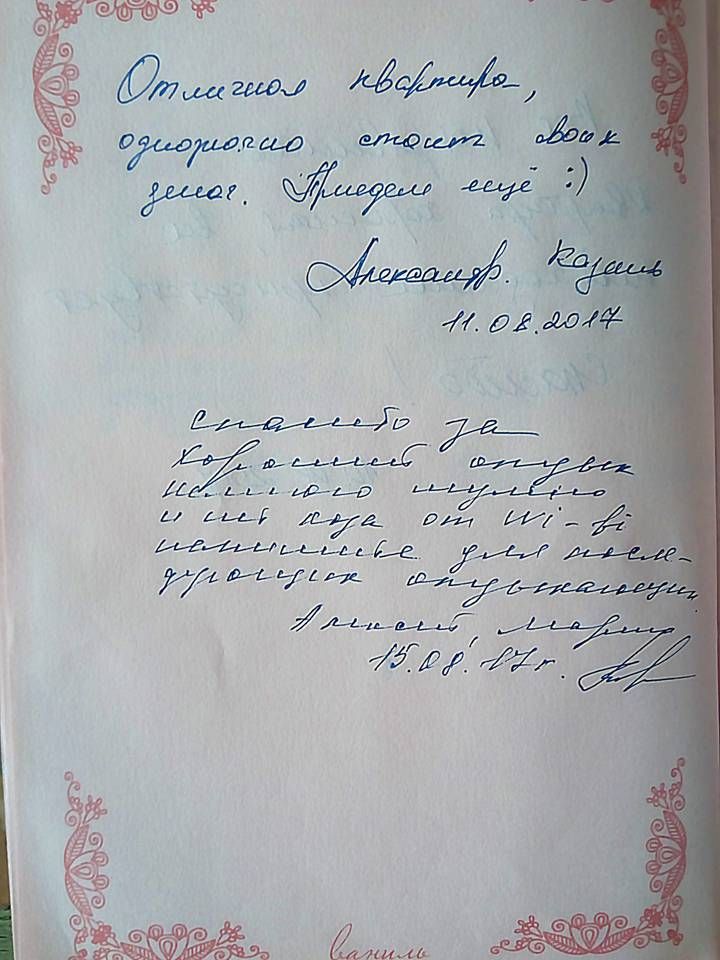 Отличная квартира,
однозначно стоит своих
денег. Приедем ещё :)
Александр. Казань
11.08.2017
спасибо за
хороший отдых
немного шумно
и нет кода от Wi-fi
напишите для после-
дующих отдыхающих
Алексей, Мария
15.08.17г.
ваниль